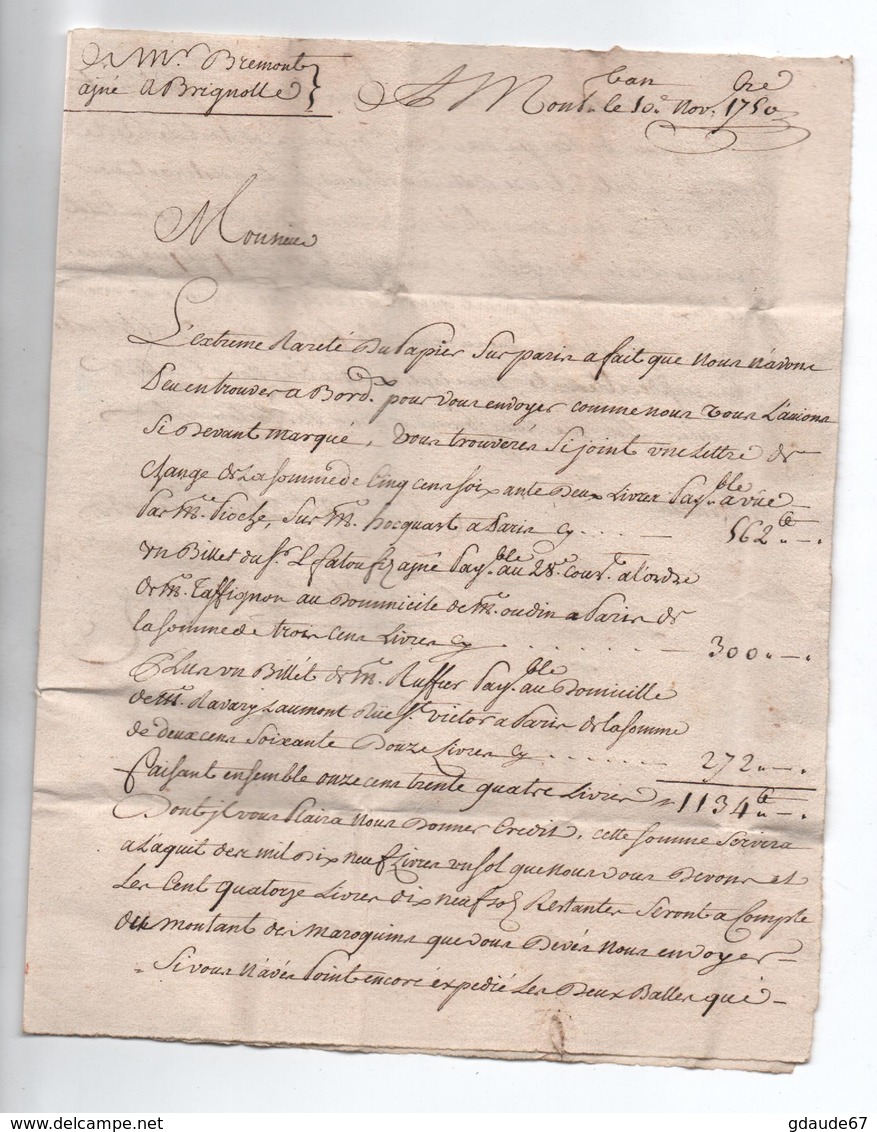 A Mr. Bremont
ajné A Brignolle
A Mont.tan le 10.e Nov.bre 1750
Monsieur
L'extreme Rareté Du Papier Sur paris a fait que Nous n'avons
Peu en trouver a Bord.x pour vous envoyer comme nous vous L'avions
Si Devant Marqué, Vous trouverés Si joint une Lettre de
Change de La Somme de Cinq cens soixante Deux Livres Pay.ble a vüe
Par Mr. Pioche, Sur Mr. hocquart a Paris Cy . . . . — 562.tt — .
un Billet du Sr. ajné Pay.ble au 28.e cour.t a l'ordre
de Mr. Taffignon au Dommicile de Mr. oudin a Paris de
la Somme de trois cens Livres Cy . . . . . . . — 300 „ — „
Plus un Billét de Mr. Ruffier Pay.ble au Domicille
de Mr. Ravary Laumont Rüe St. victor a Paris de la Somme
de deux cens Soixante Douze Livres Cy . . . . . . . — 272 „ — „
faisant ensemble onze cens trente quatre Livres 1134.tt — .
Dont jl vous Plaira Nous Donner Credit, cette Somme Servira
a L'aquit des mil Dix neuf Livres un Sol que nous vous Devons et
Les Cent quatorze Livres dix neuf sols Restantes Seront a Compte
du montant des Maroquins que vous Devés Nous envoyer —
Si vous N'avés Point encoré éxpedié Les Deux Balles qué —
gdaude67